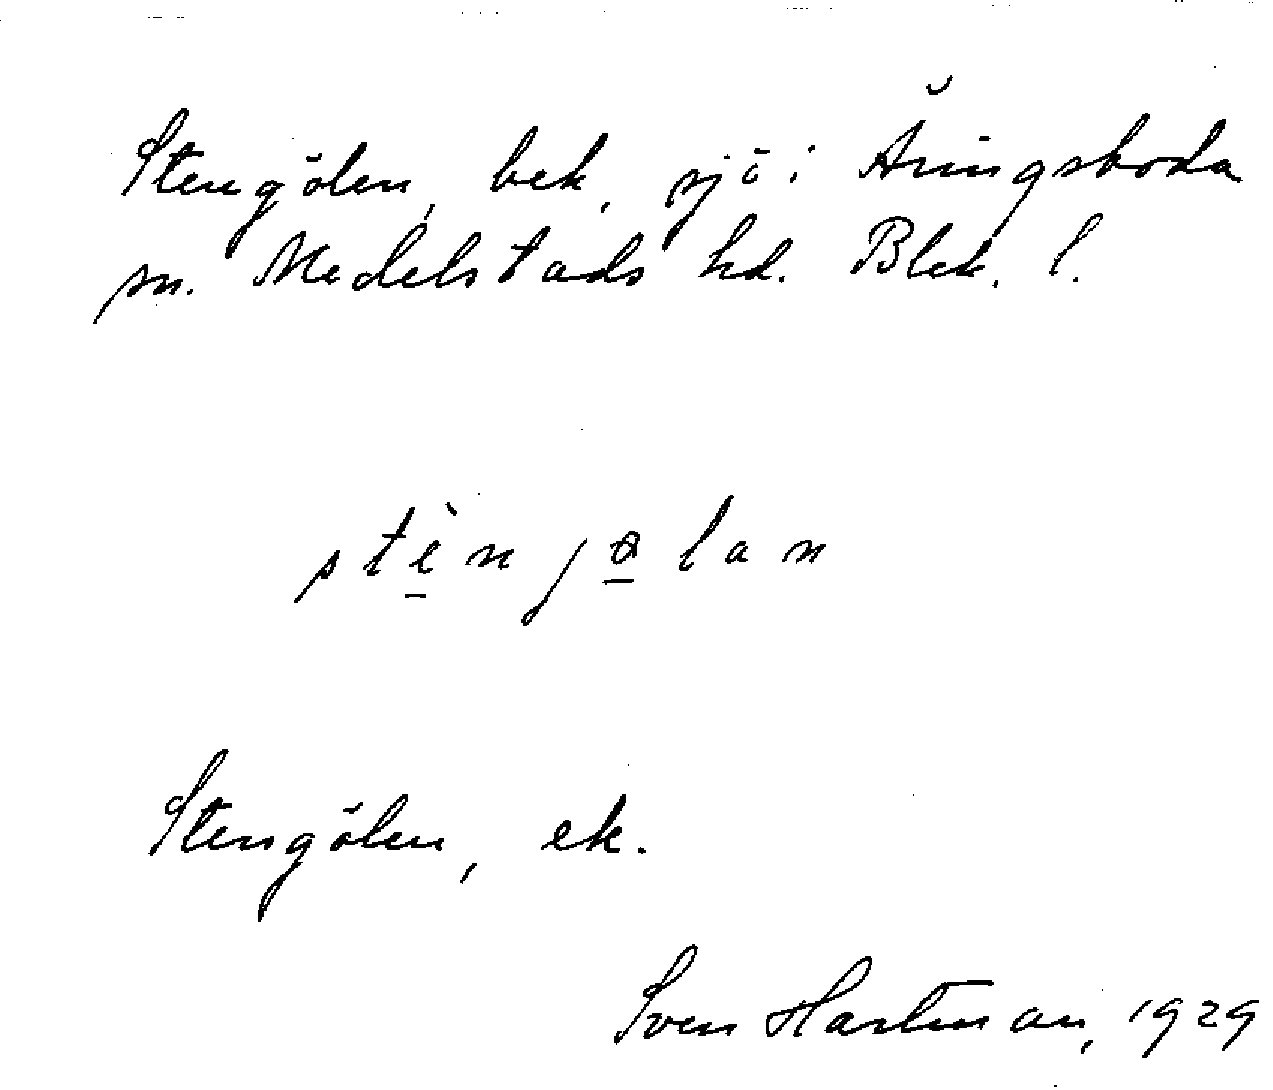 Stengölen, bek, sjö i Åringsboda
sn. Medelstads hd. Blek. l.
Stengölen, ek.
Sven Hartman, 1929